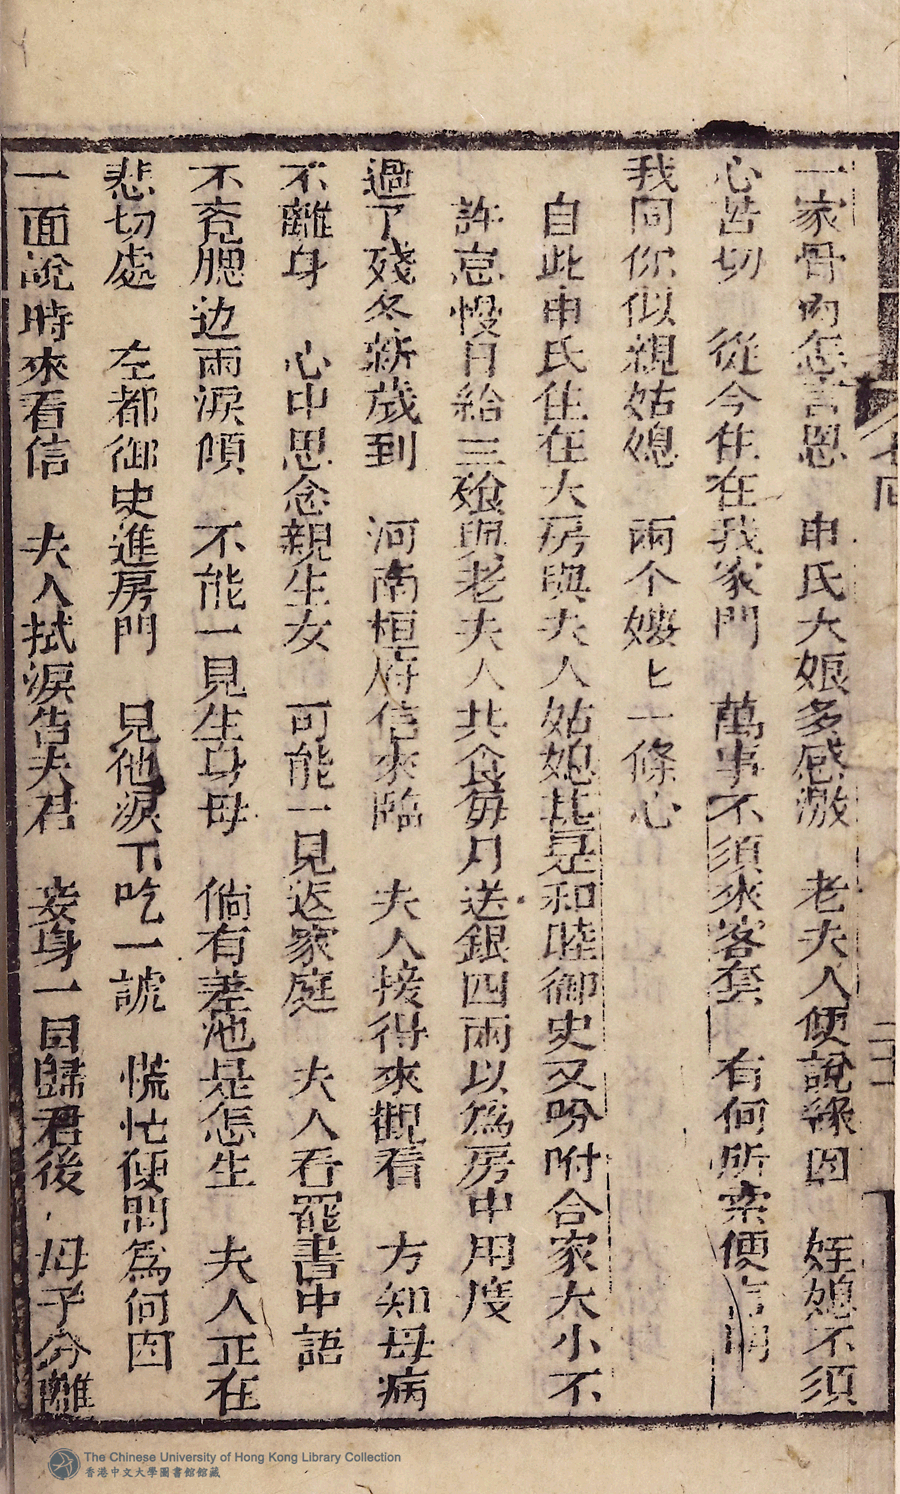 一家骨肉怎言恩　申氏大娘多感激　老夫人便說緣因　姪媳不須
心苦切　從今住在我家門　萬事不須來客套　有何所索便言明
我同你似親姑媳　兩个嫂匕一條心
自此申氏住在大房與夫人姑媳甚是和睦御史又吩咐合家大小不
許怠慢日給三飱與老夫人共食每月送銀四兩以為房中用度
過了殘冬新歲到　河南桓府信來臨　夫人接得來觀看　方知母病
不離身　心中思念親生女　可能一見返家庭　夫人看罷書中語
不覔腮边兩淚傾　不能一見生身母　倘有差池是怎生　夫人正在
悲切處　左都御史進房門　見他淚下吃一諕　慌忙便問為何因
一面說時來看信　夫人拭淚告夫君　妾身一自歸君後　母子分離
卷四
二十一
The Chinese University of Hong Kong Library Collection
香港中文大學圖書館館藏